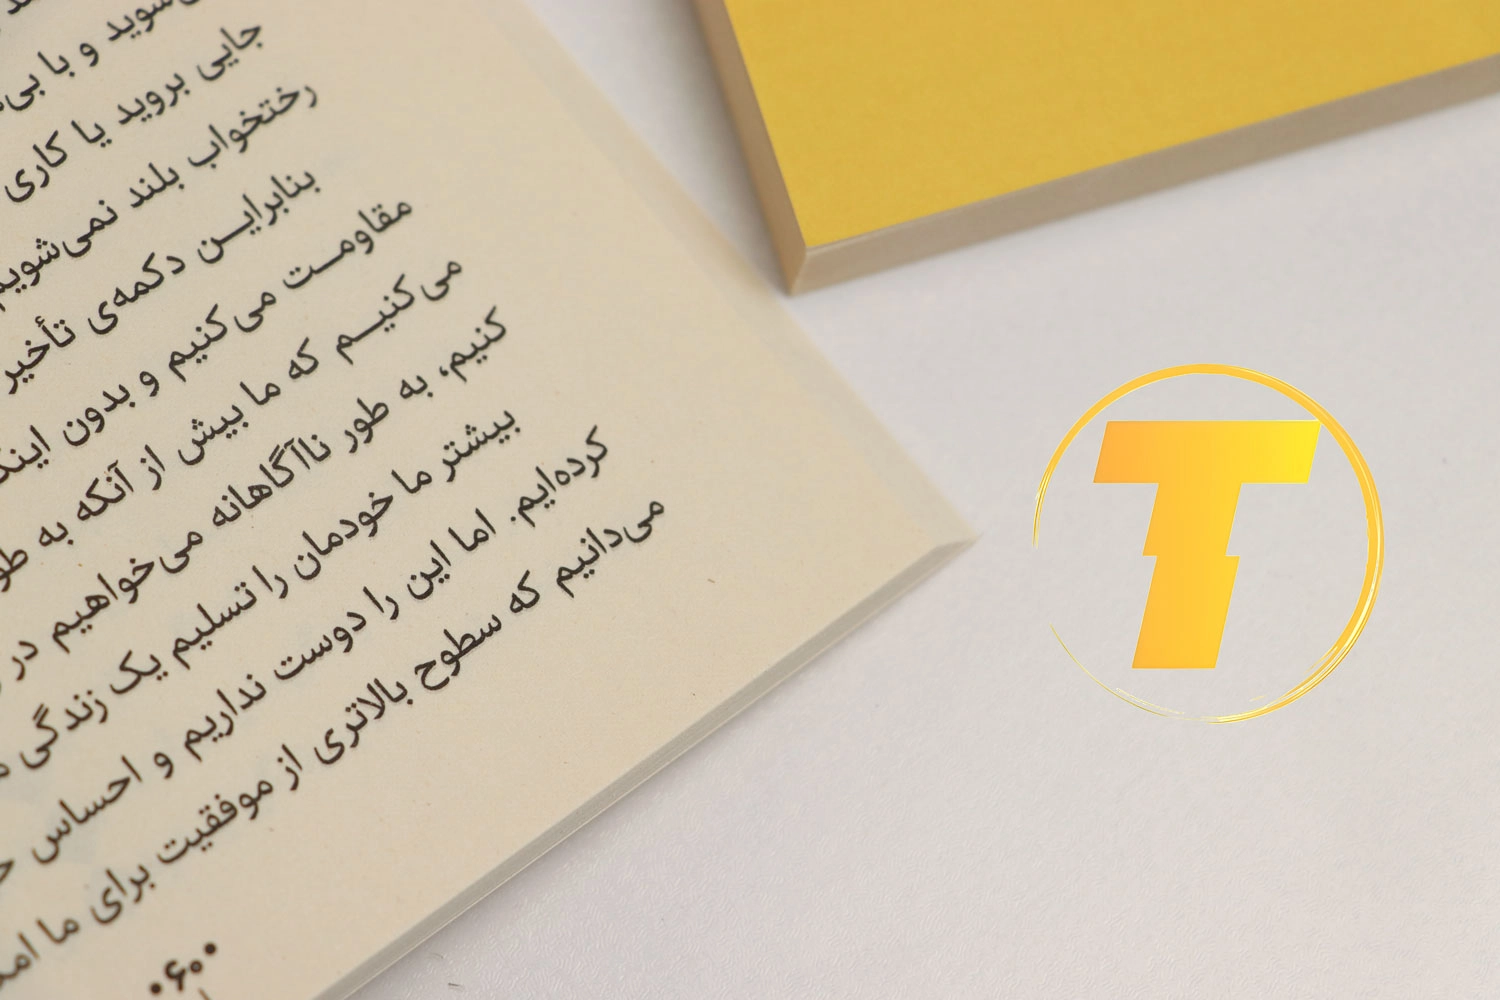 می‌شوید و با بی
جایی بروید یا کاری
رختخواب بلند نمی‌شویم
بنابراین دکمه‌ی تأخیر
مقاومت می‌کنیم و بدون اینکه
می‌کنیم که ما بیش از آنکه به طور
کنیم، به طور ناآگاهانه می‌خواهیم در
بیشتر ما خودمان را تسلیم یک زندگی
کرده‌ایم. اما این را دوست نداریم و احساس
می‌دانیم که سطوح بالاتری از موفقیت برای ما
۰۶۰۰
T